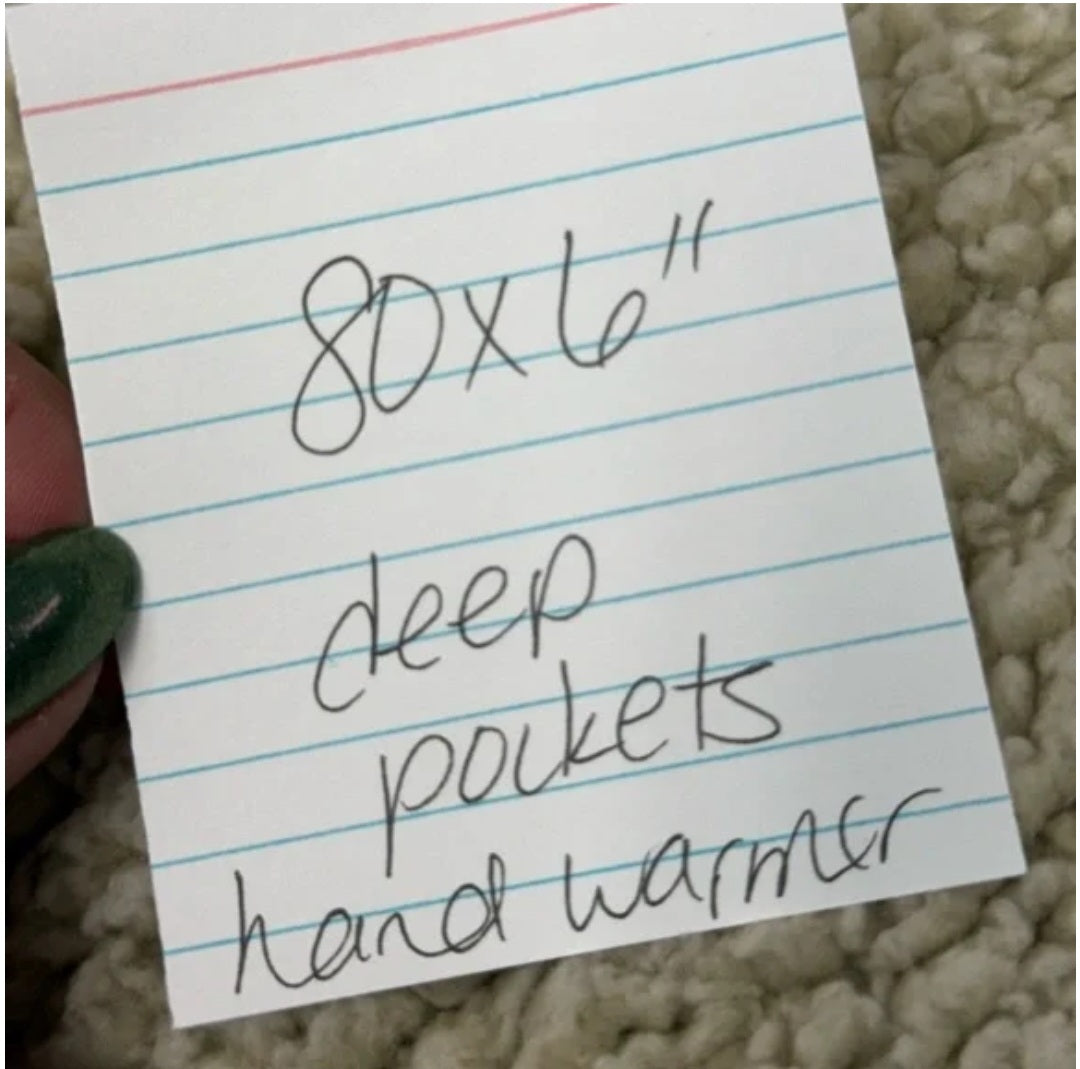 80x6"
deep
pockets
hand warmer